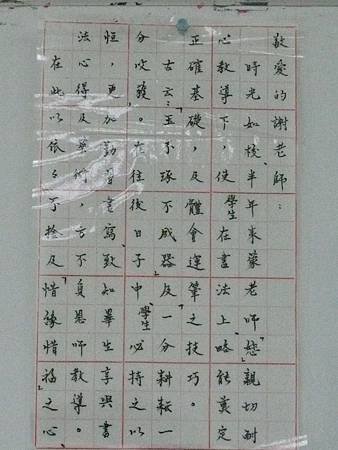 敬愛的謝老師:
時光如梭,半年來蒙老師您親切耐
心教導下,使學生在書法上略能奠定
正確基礎,及體會運筆之技巧。
古云:「玉不琢不成器」及「一分耕耘一
分收穫」。在往後日子中,學生必持之以
恒,更加勤習書寫,致知畢生享與書
法心得及藝術,方不負恩師教導。
在此以依々不捨及「惜緣惜福」之心、